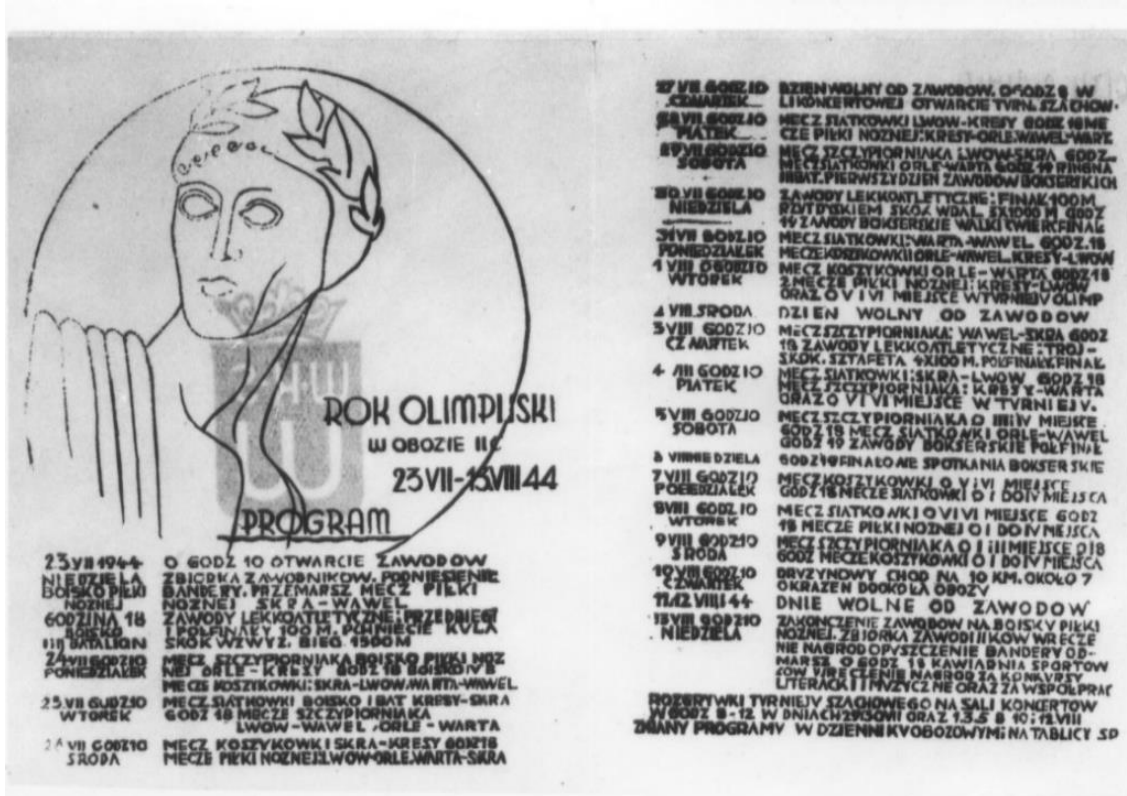 ROK OLIMPIJSKI
W OBOZIE II C
23 VII-15.VIII 44
PROGRAM
23 VII 1944 O GODZ 10 OTWARCIE ZAWODOW
NIEDZIELA ZBIORKA ZAWODNIKOW. PODNIESIENIE
BOISKO PIŁKI BANDERY. PRZEMARSZ MECZ PIŁKI
NOZNEJ NOZNEJ SKRA-WAWEL
GODZINA 18 ZAWODY LEKKOATLETYCZNE: PRZEDBIEGI
BOISKO I POŁFINAŁY 100 M. PCHNIECIE KULA
III BATALION SKOK WZWYZ. BIEG 1500 M
24 VII GODZ 10 MECZ SZCZYPIORNIAKA BOISKO PIŁKI NOZ
PONIEDZIAŁEK NEJ ORLE-KRESY GODZ 18 BOISKO
MECZE KOSZYKOWKI: SKRA-LWOW. WARTA-WAWEL
25 VII GODZ 10 MECZ SIATKOWKI BOISKO I BAT KRESY-SKRA
WTOREK GODZ 18 MECZE SZCZYPIORNIAKA
LWOW-WAWEL, ORLE-WARTA
26 VII GODZ 10 MECZ KOSZYKOWKI SKRA-KRESY GODZ 18
SRODA MECZE PIŁKI NOZNEJ: LWOW-ORLE. WARTA-SKRA
27 VII GODZ 10 DZIEN WOLNY OD ZAWODOW. O GODZ 9 W
CZWARTEK LI KONCERTOWEJ OTWARCIE TYRN. SZACHOW.
28 VII GODZ 10 MECZ SIATKOWKI LWOW-KRESY GODZ 18 ME
PIATEK CZE PIŁKI NOZNEJ: KRESY-ORLE. WAWEL-WART.
29 VII GODZ 10 MECZ SZCZYPIORNIAKA LWOW-SKRA GODZ.
SOBOTA MECZ SIATKOWKI ORLE-WARTA GODZ 19 RING NA
III BAT. PIERWSZY DZIEN ZAWODOW BOKSERSKICH
30 VII GODZ 10 ZAWODY LEKKOATLETYCZNE: FINAŁ 100 M.
NIEDZIELA RZUT DYSKIEM SKOK WDAL. 5X1000 M GODZ
19 ZAWODY BOKSERSKIE WALKI CWIERCFINAŁ
31 VII GODZ 10 MECZ SIATKOWKI: WARTA-WAWEL. GODZ. 18
PONIEDZIAŁEK MECZE KOSZYKOWKI ORLE-WAWEL. KRESY-LWOW
1 VIII O GODZ 10 MECZ KOSZYKOWKI ORLE-WARTA GODZ 18
WTOREK 2 MECZE PIŁKI NOZNEJ: KRESY-LWOW
ORAZ O V I VI MIEJSCE W TVRNIEJV OLIMP
2 VIII. SRODA DZIEN WOLNY OD ZAWODOW
3 VIII GODZ 10 MECZ SZCZYPIORNIAKA: WAWEL-SKRA GODZ
CZWARTEK 18 ZAWODY LEKKOATLETYCZNE: TROJ-
SKOK. SZTAFETA 4X100 M. POŁFINAŁ. FINAŁ.
4 VIII GODZ 10 MECZ SIATKOWKI: SKRA-LWOW GODZ 18
PIATEK MECZ SZCZYPIORNIAKA: KRESY-WARTA
ORAZ O V I VI MIEJSCE W TVRNIEJV.
5 VIII GODZ 10 MECZ SZCZYPIORNIAKA O III IV MIEJSCE
SOBOTA GODZ 18 MECZ SIATKOWKI ORLE-WAWEL
GODZ 19 ZAWODY BOKSERSKIE POŁFINAŁ
6 VIII NIEDZIELA GODZ 19 FINAŁOWE SPOTKANIA BOKSERSKIE
7 VIII GODZ 10 MECZ KOSZYKOWKI O V I VI MIEJSCE
PONIEDZIAŁEK GODZ 18 MECZE SIATKOWKI O I DO IV MIEJSCA
8 VIII GODZ 10 MECZ SIATKOWKI O V I VI MIEJSCE GODZ
WTOREK 18 MECZE PIŁKI NOZNEJ O I DO IV MIEJSCA
9 VIII GODZ 10 MECZ SZCZYPIORNIAKA O I I II MIEJSCE O 18
SRODA GODZ MECZE KOSZYKOWKI O I DO IV MIEJSCA
10 VIII GODZ 10 DRVZYNOWY CHOD NA 10 KM. OKOŁO 7
CZWARTEK OKRAZEN DOOKOŁA OBOZV
11.12 VIII 44 DNIE WOLNE OD ZAWODOW
13 VIII GODZ 10 ZAKONCZENIE ZAWODOW NA BOISKV PIŁKI
NIEDZIELA NOZNEJ. ZBIORKA ZAWODNIKOW WRECZE
NIE NAGROD OPVSZCZENIE BANDERY OD-
MARSZ. O GODZ. 18 KAWIARNIA SPORTOW
COW WRECZENIE NAGROD ZA KONKVRSY
LITERACKI I MVZYCZNE ORAZ ZA WSPOŁPRAC
ROZGRYWKI TVRNIEJV SZACHOWEGO NA SALI KONCERTOW
W GODZ 8-12 W DNIACH ORAZ 1.3.5 8 10 12 VIII
ZMIANY PROGRAMV W DZIENNIKV OBOZOWYM I NA TABLICY SP